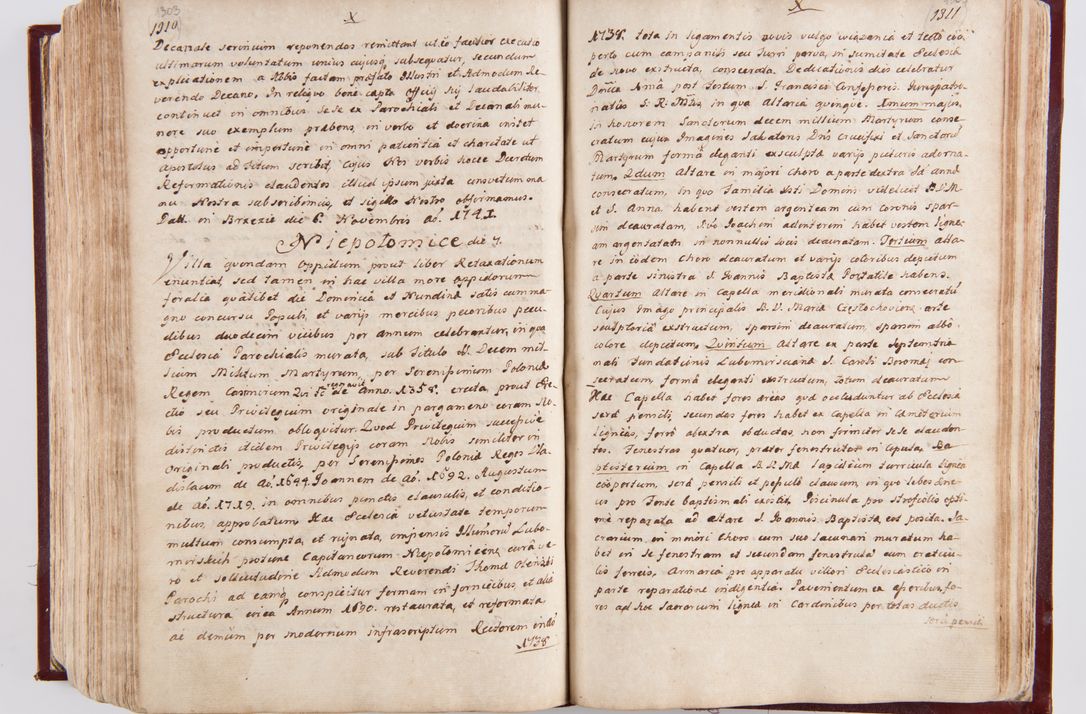 1303
1310
X
Decanale serinium reponendos remittant ut eo facilior executio
ultimarum voluntatum unius cujusq subsequatur, secundum
explicationem a Nobis factam præfato Illustri et Admodum Re
verendo Decano. In reliquo bene capta officij sui laudabiliter
continuet in omnibus se se ex Parochiali et Decanali mu
nere suo exemplum præbens, in verbo et doctrina instet
opportune et importune in omni patientia et charitate ut
Apostolus ad Titum scribit, Cujus Nos verbis hocce Decretum
Reformationis claudentes illud ipsum juxta consvetum ma
nu Nostra subscribimus, et sigillo Nostro obfirmamus.
Datt. in Brzezie die 6. Novembris Aõ. 1741.
Niepołomice die 7.
Villa quondam Oppidum prout liber Retaxationum
enuntiat, sed tamen in hac villa more oppidorum
foralia quælibet die Dominica et Nundinæ satis cum ma
gno concursu Populi, et varijs mercibus pecoribus pecu
dibus duodecim vicibus per annum celebrantur, in qua
Ecclesia Parochialis murata, sub Titulo SS. Decem mil
lium Militum Martyrum, per Serenissimum Poloniæ
Regem Casimirum Anno. 1358. erecta, prout Ere
ctio seu Privilegium originale in pargameno coram No
bis productum obloquitur. Quod Privilegium successive
distinctis itidem Privilegijs coram Nobis similiter in
Originali productis, per Serenissimos Poloniæ Reges Vla
dislaum de Aõ. 1644. Joannem de Aõ. 1692. Augustum
de Aõ. 1719. in omnibus punctis clausulis, et conditio
nibus, approbatum. Hæc Ecclesia vetustate temporum
multum consumpta, et rujnata, impensis Illustrium Lubo
mirskich protunc Capitaneorum Niepolomicen, cura ve
ro et sollicitudine Admodum Reverendi Thomæ
Parochi ad eamq conspicitur formam in fornicibus et alia
structura circa Annum 1690. restaurata, et reformata
ac demum per modernum infrascriptum Rectorem
1738
X
1311
1738. tota in ligamentis novis vulgo wiązania et tecto
perto cum campanili seu turri parva, in sumitate Ecclesiæ
de novo exstructa, consecrata. Dedicationis dies celebratur
Dnica Ima post Festum S. Francisci Confessoris.
natus S. R. Mttis, in qua Altaria quinque. Imum majus,
in honorem Sanctorum decem millium Martyrum conse
cratum cujus Imagines Salvatoris Dni crucifixi et Sanctorum
Martyrum forma eleganti exsculptæ varijs picturis adorna
tum. 2dum Altare in majori Choro a parte dextra Sæ Annæ
consecratum, In quo Familia Xsti Domini videlicet B.V.M.
et S. Anna habent vestem argenteam cum Coronis spar
sim deauratam, Joachim adinterem habet vestem ligne
am argentatam in nonnullis locis deauratam. Tertium alta
re in eodem Choro deauratum et varijs coloribus depictum
a parte sinistra S. Joannis Baptistæ Portatile habens.
Quartum Altare in Capella meridionali murata consecratū
Cujus Imago principalis B. V. Mariæ Częstochovien: arte
sculptoria exstructum, sparsim deauratum, sparsim albo
colore depictum. Quintum Altare ex parte Septemtrio
nali Fundationis Lubomirscianæ S. Caroli Boromej con
secratum, forma eleganti exstructum, totum deauratum
Hæc Capella habet fores æreas qua occluduntur ab Ecclesia
sera pensili, secundas fores habet ex Capella in Cæmeterium
ligneas, ferro abextra obductas, non firmiter se se clauden
tes. Fenestras quatuor, præter fenestrulas in Cupula. Ba
ptisterium in Capella B. V. Mæ lapidicium turricula lignea
coopertum, sera pensili et pessulo clausum, in quo lebes æne
us pro Fonte baptismali existit. Piscinula pro opti
me reparata ad altare S. Joannis Baptistæ est posita. Sa
crarium in minori Choro cum suo lacunari muratum ha
bet in se fenestram et secundam fenestrulam cum craticu
lis ferreis, Armaria pro apparatu viliori Ecclesiastico in
parte reparatione indigentia. Pavimentum ex fo
res ad hoc Sacrorum ligneæ in Cardinibus per totas ductis
sera pensili